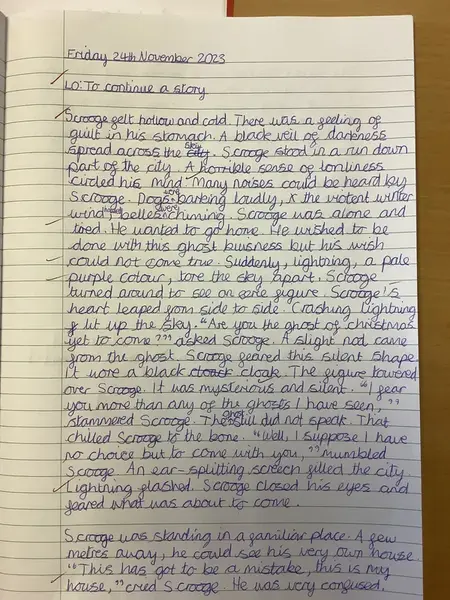 Friday 24th November 2023
LO: To continue a story
Scrooge felt hollow and cold. There was a feeling of
guilt in his stomach. A black veil of darkness
spread across the city. sky Scrooge stood in a run down
part of the city. A horrible sense of lonliness
circled his mind. Many noises could be heard by
Scrooge. Dogs barking loudly, the violent winter
wind, bells were chiming. Scrooge was alone and
tired. He wanted to go home. He wished to be
done with this ghost buisness but his wish
could not come true. Suddenly, lightning, a pale
purple colour, tore the sky apart. Scrooge
turned around to see an eerie figure. Scrooge's
heart leaped from side to side. Crashing lightning
lit up the sky. "Are you the ghost of christmas
yet to come?" asked Scrooge. A slight nod came
from the ghost. Scrooge feared this silent shape
It wore a black cloak. The figure towered
over Scrooge. It was mysterious and silent. "I fear
you more than any of the ghosts I have seen,"
stammered Scrooge. The ghost still did not speak. That
chilled Scrooge to the bone. "Well, I suppose I have
no choice but to come with you," mumbled
Scrooge. An ear-splitting screech filled the city.
Lightning flashed. Scrooge closed his eyes and
feared what was about to come.
Scrooge was standing in a familiar place. A few
metres away, he could see his very own house.
"This has got to be a mistake, this is my
house," cried Scrooge. He was very confused.